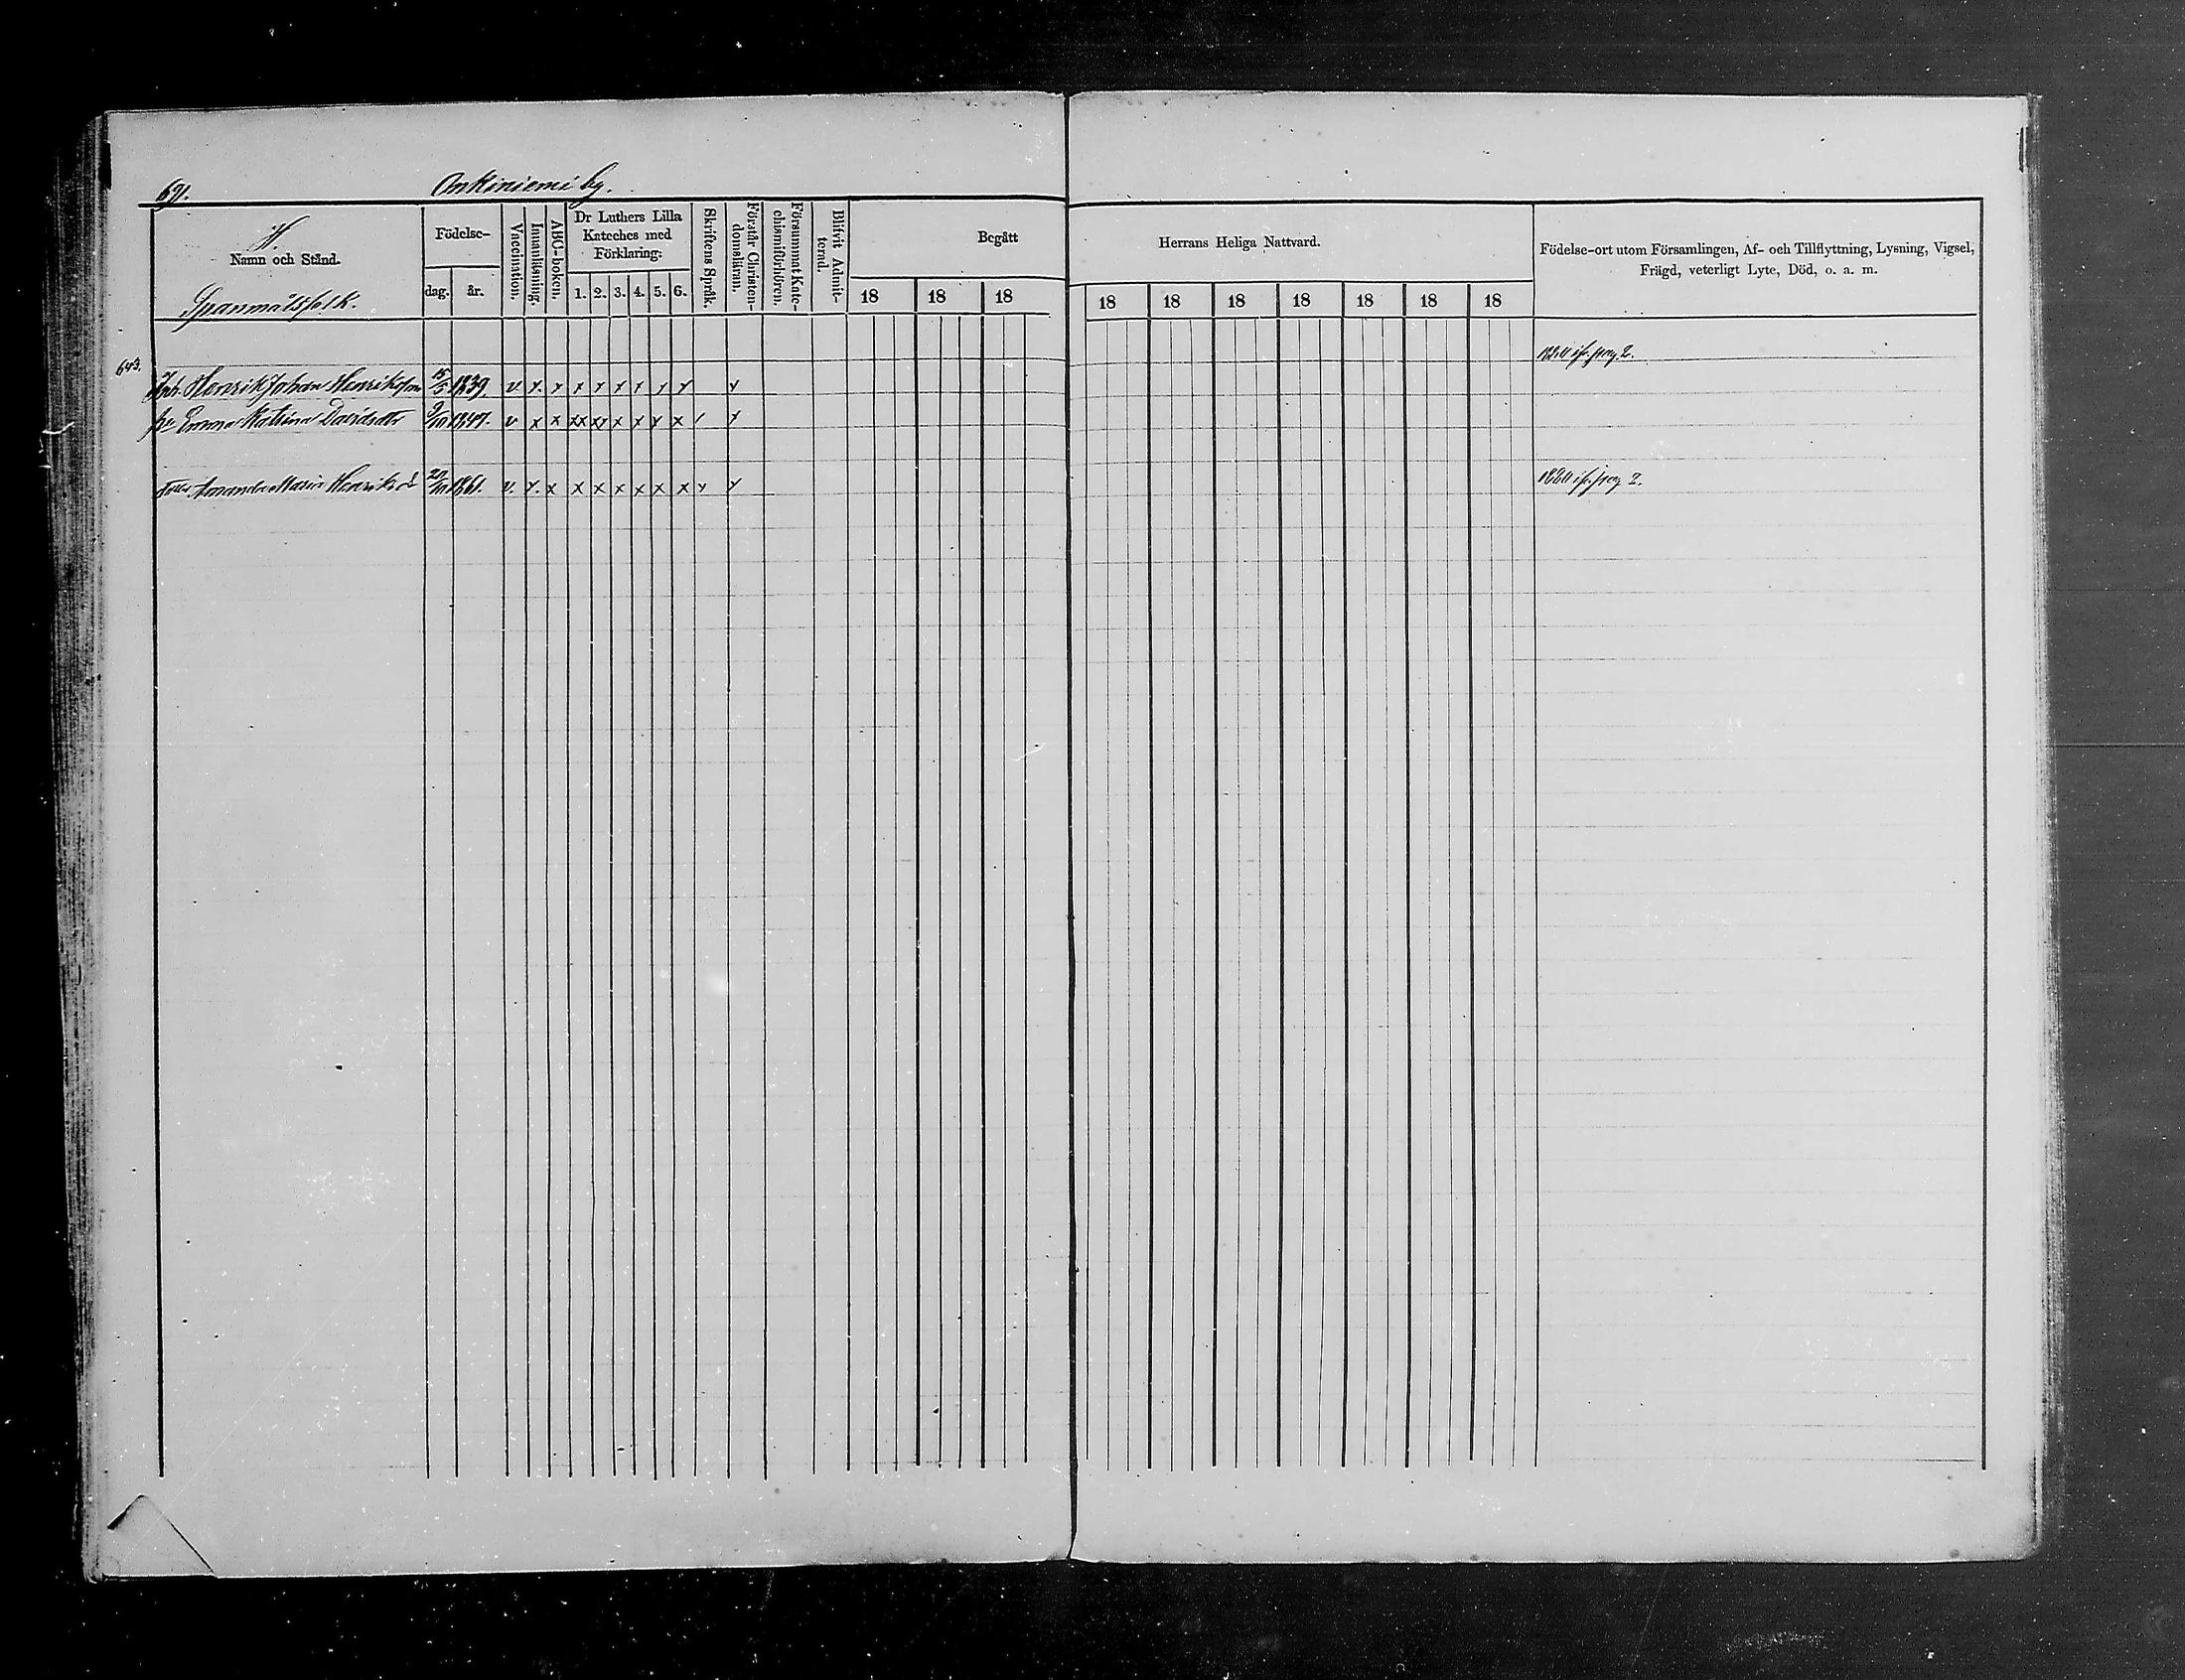 691.
Onkiniemi by.
H.
Namn och Stånd.
Spanmålsfolk.
Födelse-
dag. år.
Vaccination.
Innanläsning.
ABC-boken.
Dr Luthers Lilla
Kateches med
Förklaring:
1. 2. 3. 4. 5. 6.
Skriftens Språk.
Förstår Christen-
domsläran.
Försummat Kate-
chismiförhören.
Blifvit Admit-
terad.
Begått
18 18 18
Herrans Heliga Nattvard.
18 18 18 18 18 18 18
Födelse-ort utom Församlingen, Af- och Tillflyttning, Lysning, Vigsel,
Frägd, veterligt Lyte, Död, o. a. m.
643.
Henrik Johan Henriksson 15/5 1839. v x. x x x x x x x x
Emma Katrina Davidsdtr 9/10 1847. v x x xx xx x x x x / x
Amanda Maria Henriksd 20/10 1861. v. x. x x x x x x x x x
pag 2.